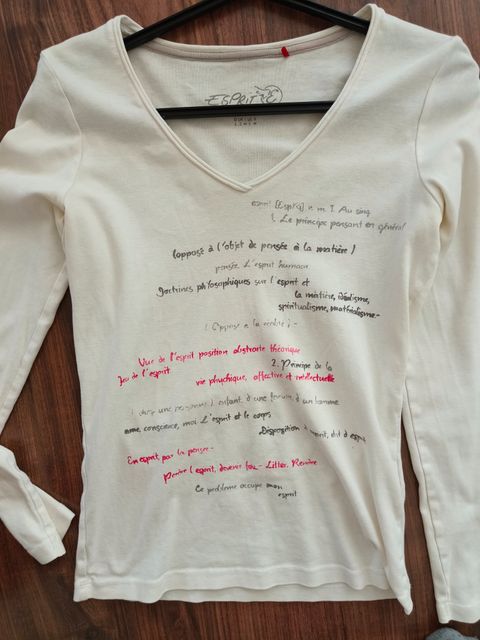 ESPRIT
esprit [Espri] n. m. I. Au sing
1. Le principe pensant en général
(opposé à l'objet de pensée à la matière)
pensée. L'esprit humain
Doctrines philosophiques sur l'esprit et
la matière, idéalisme,
spiritualisme, matérialisme-
(Opposé à la réalité)-
Vue de l'esprit position abstraite théorique
Jeu de l'esprit
2. Principe de la
vie phychique, affective et intellectuelle
enfant, d'une femme, d'un homme
ame, conscience, moi. L'esprit et le corps
Disposition d'esprit
En esprit par la pensée-
Perdre l'esprit, devenir fou- Litter.
Ce problème occupe mon
esprit